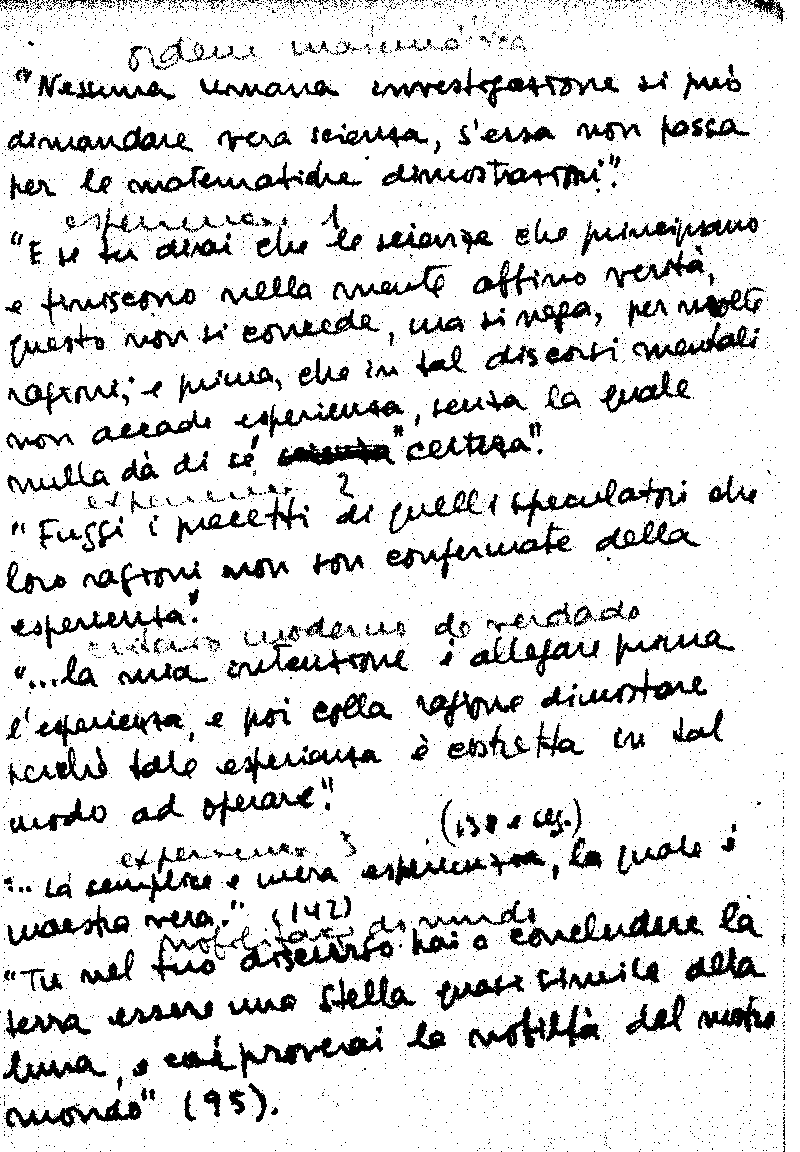 ordem matemática
"Nessuna umana investigazione si può
dimandare vera scienza, s'essa non passa
per le matematiche dimostrazioni".
esperienza 1
"E se tu dirai che le scienze che principiano
e finiscono nella mente abbino verità,
questo non si concede, ma si nega, per molte
ragioni; e prima, che in tal discorsi mentali
non accade esperienza, senza la quale
nulla dà di sé "certeza".
2
"Fuggi i precetti di quelli speculatori che
loro ragioni non son confermate della
esperienza".
criterio moderno de verdade
"...la mia intenzione è allegare prima
l'esperienza, e poi colla ragione dimostare
perché tale esperienza è costretta in tal
modo ad operare".
(138 e seg.)
3
"... la semplice e mera esperienza, la quale è
maestra vera." (142)
do mundo
"Tu nel tuo discurso hai a concludere la
terra essere una stella quase simile alla
luna, e così proverai la nobiltà del nostro
mondo" (95).